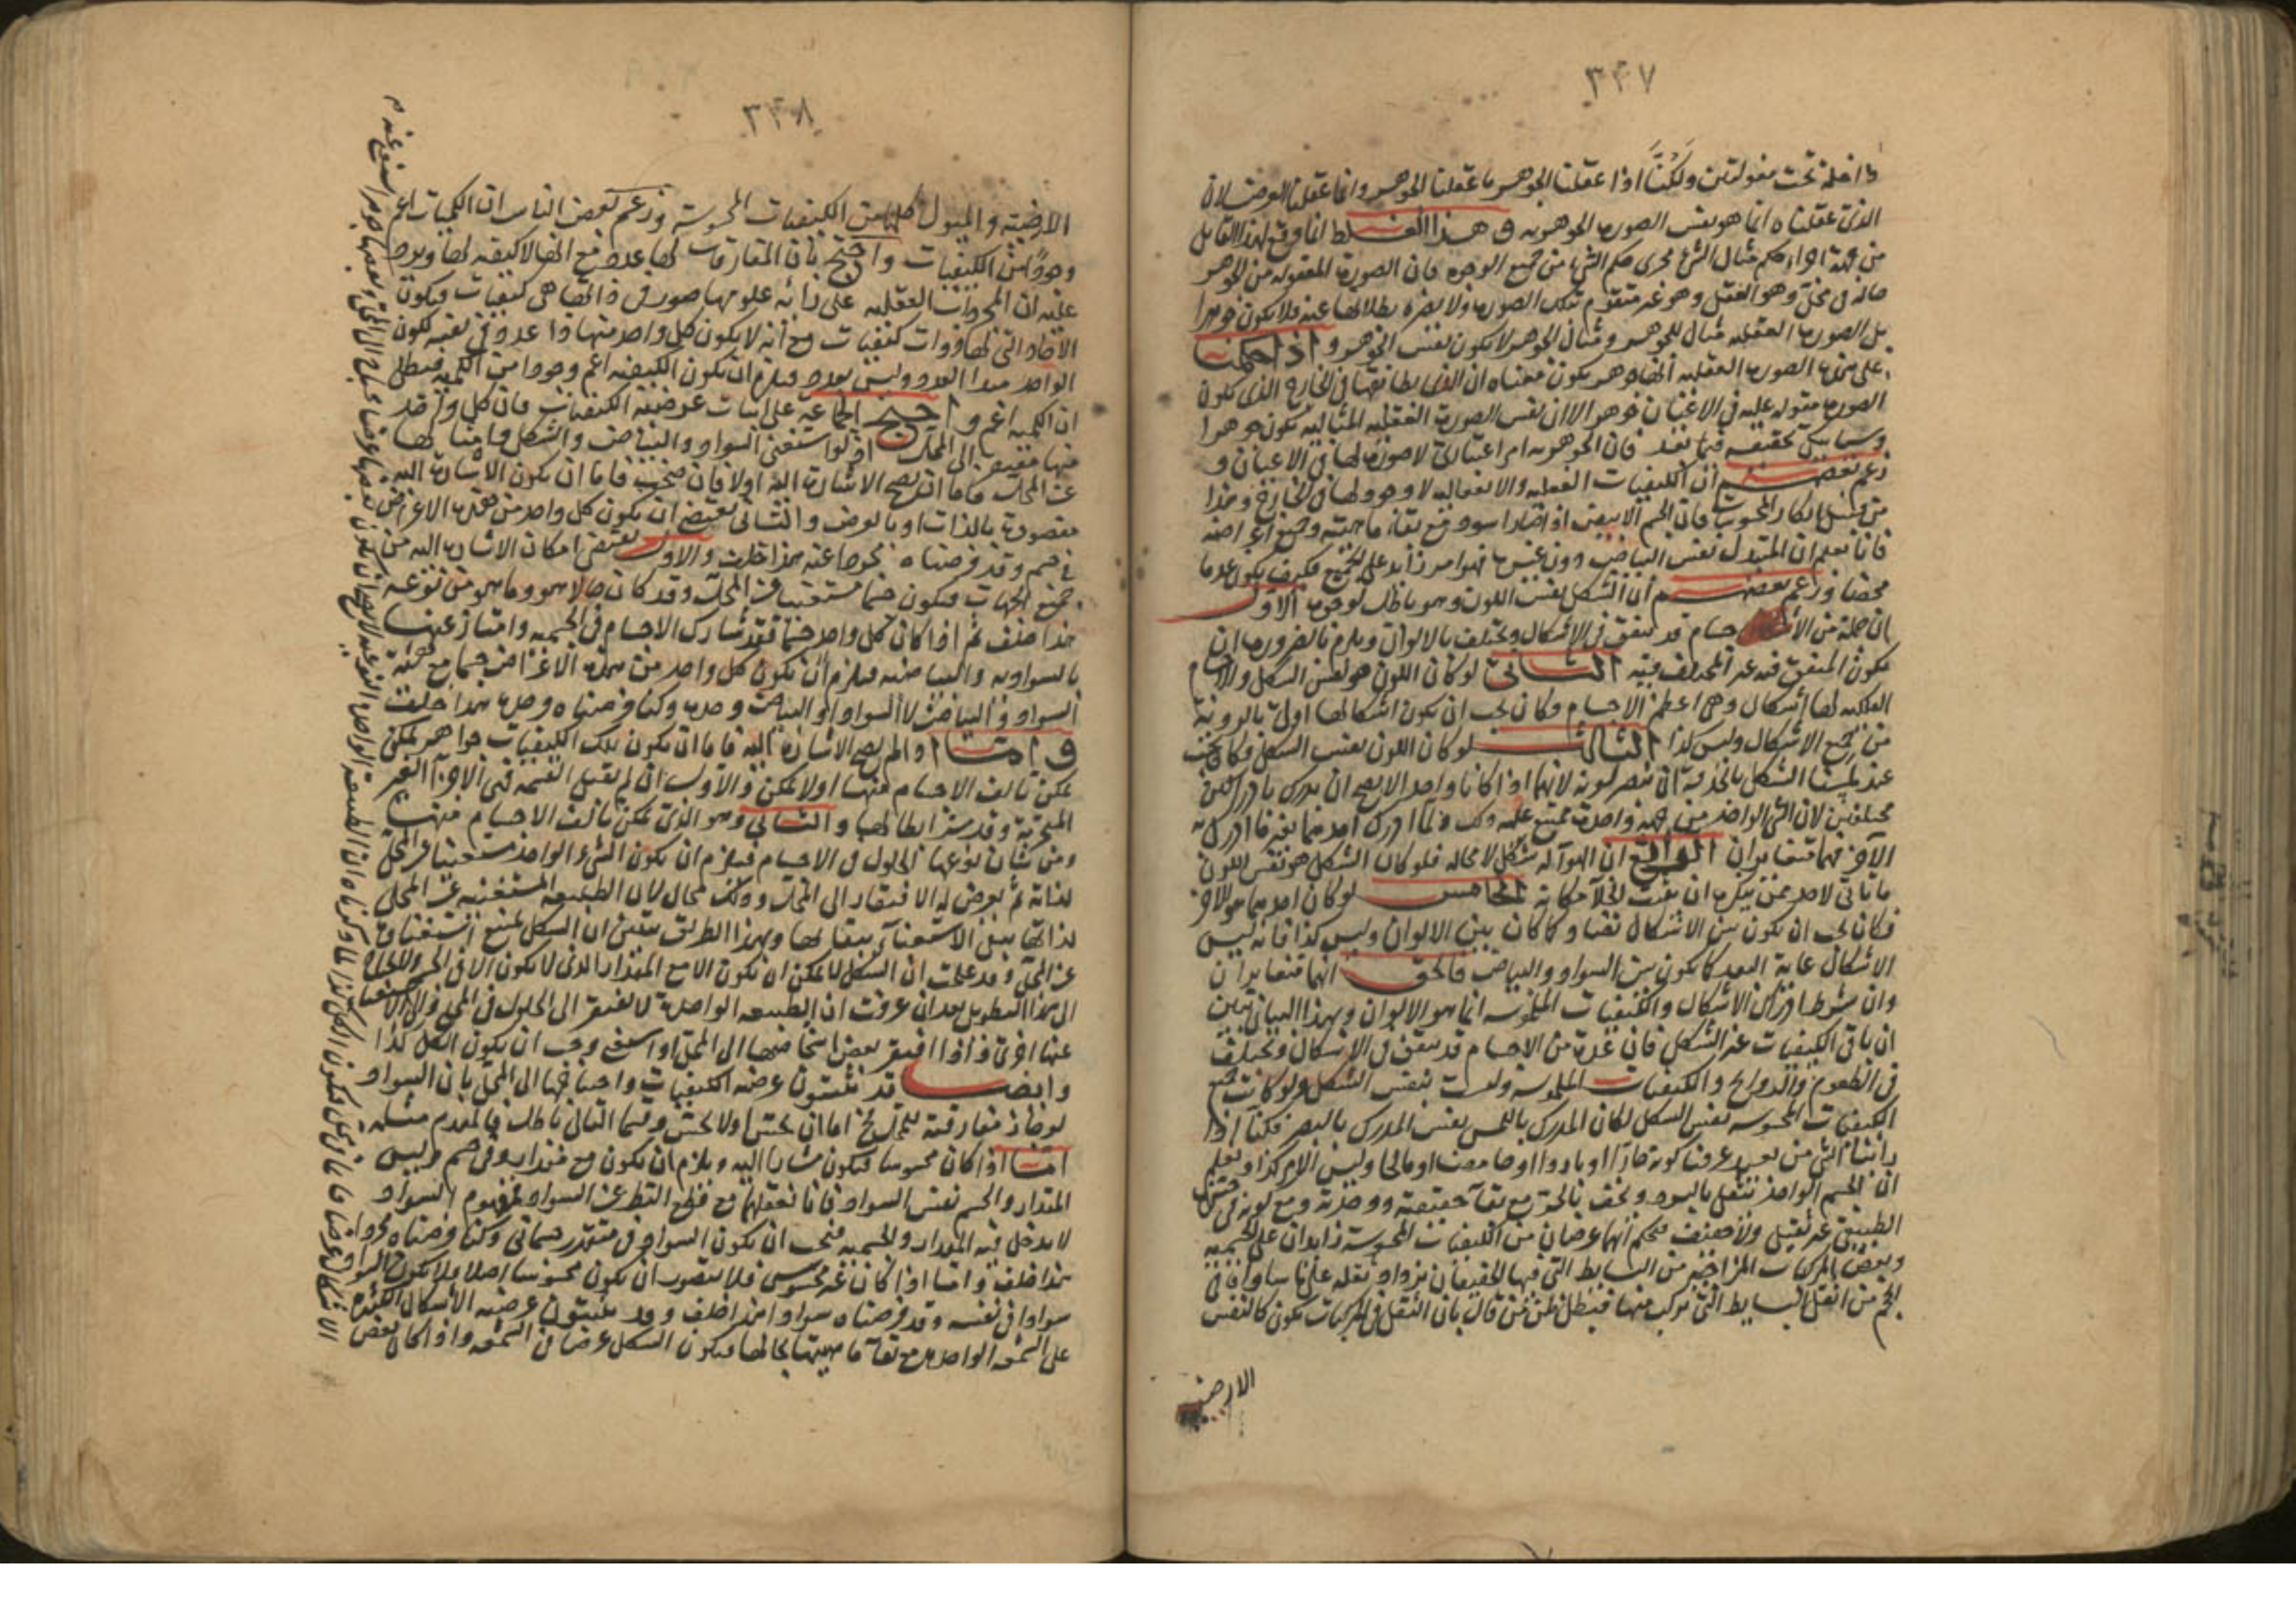 ٣٤٧
داخلة تحت مقولتين ولكنّا اذا عقلنا الجوهر ما عقلنا الجوهر وانما عقلنا العرض لان
الذى عقلناه انما هو نفس الصورة الجوهرية و هذا الغلط انما وقع لهذا القايل
من جهة اجراء حكم مثال الشئ مجرى حكم الشئ من جميع الوجوه فان الصورة المعقوله من الجوهر
حالة فى محل وهو العقل وهو غير متقوم بتلك الصورة ولا يضره بطلانها عنه فلا يكون جوهرا
بل الصورة العقلية مثال للجوهر ومثال الجوهر لا يكون نفس الجوهر و اذا حكمنا
على هذه الصورة العقلية انها جوهر يكون معناه ان الذى يطابقها فى الخارج الذى تكون
الصورة مقوله عليه فى الاعيان جوهر لا ان نفس الصورة العقلية المثالية تكون جوهرا
وسياتيك تحقيقه فيما بعد فان الجوهرية امر اعتبارى لا صورة لها فى الاعيان و
زعم بعضهم ان الكيفيات الفعلية والانفعالية لا وجود لها فى الخارج وهذا
من قبيل انكار المحسوسات فان الجسم الابيض اذا صار اسود مع بقاء ماهيته وجميع اعراضه
فانا نعلم ان المتبدل نفس البياض دون غيره فهو امر زايد على الجميع فكيف يكون عدما
محضا وزعم بعضهم ان الشكل نفس اللون وهو باطل لوجوه الاول
ان جملة من الاجسام قد يتفق فى الاشكال ويختلف بالالوان ويلزم بالضرورة ان
يكون المتفق فيه غير المختلف فيه الثانى لو كان اللون هو نفس الشكل والاجرام
الفلكية لها اشكال وهى اعظم الاجسام وكان يجب ان يكون اشكالها اولى بالروية
من جميع الاشكال وليس كذا الثالث لو كان اللون نفس الشكل فكان يجب
عند لمسنا الشكل باليد ان نبصر لونه لانهما اذا كانا واحدا لا يصح ان يدرك بادراكين
مختلفين لان الشئ الواحد من جهة واحدة يمتنع عليه ذلك ولما ادرك احدهما بغير ما ادرك به
الآخر فهما متغايران الرابع ان الهواء له شكل لا محالة فلو كان الشكل هو نفس اللون
ما تاتى لاحد ممن ينكره ان يثبت الخلآ مكانه الخامس لو كان احدهما هو الاخر
فكان يجب ان يكون بين الاشكال تضاد كما كان بين الالوان وليس كذا فانه ليس
الاشكال غاية البعد كما يكون بين السواد والبياض فالحق انهما متغايران
وان شرط ادراك الاشكال والكيفيات الملموسه انما هو الالوان وبهذا البيان تبين
ان باقى الكيفيات غير الشكل فان عدة من الاجسام قد يتفق فى الاشكال ويختلف
فى الطعوم والروايح والكيفيات الملموسة وليست بنفس الشكل ولو كانت جميع
الكيفيات المحسوسه نفس الشكل لكان المدرك باللمس نفس المدرك بالبصر فكنا اذا
راينا الشئ من بعيد عرفنا كونه حارا او باردا او حامضا او مالحا وليس الامر كذا ونعلم
ان الجسم الواحد يثقل بالبرد ويخف بالحر مع بقآ حقيقته ووحدته ومع كونه فى حيزه
الطبيعى غير ثقيل ولا خفيف فيحكم انهما عرضان من الكيفيات المحسوسة زايدان على الجسمية
وبعض المركبات المزاجيه من البسايط التى فيها الخفيفان يزداد ثقله على ما يساويه فى
الحجم من اثقل البسايط التى تركب منها فبطل ظن من قال بان الثقل فى المركبات يكون كالنفس
الارضية
٣٤٨
الارضية والميول كلها من الكيفيات المحسوسة وزعم بعض الناس ان الكميات اعم
وجودا من الكيفيات واحتج بان المفارقات لها عدد مع انها لا كيفية لها ويرد
عليه ان المجردات العقليه على رايه علومها صور فى ذاتها هى كيفيات فيكون
الآحاد التى لها ذوات كيفيات مع انه لا يكون كل واحد منها ذا عدد فى نفسه لكون
الواحد مبدا العدد وليس بعدد فيلزم ان يكون الكيفية اعم وجودا من الكمية فبطل
ان الكمية اعم و احتج الجماعة على اثبات عرضية الكيفيات فان كل واحد
منها مفتقر الى المحل اذ لو استغنى السواد والبياض والشكل وامثالها
عن المحل فاما ان يصح الاشارة اليه اولا فان صحت فاما ان يكون الاشارة اليه
مقصودة بالذات او بالعرض والثانى يقتضى ان يكون كل واحد من هذه الاعراض
فى جسم وقد فرضناه مجردا عنه هذا خلف والاول يقتضى امكان الاشارة اليه من
جميع الجهات فيكون جسما مستغنيا عن المحل وقد كان حالا هو وما هو من نوعه
هذا خلف ثم اذا كان كل واحد جسما فقد شارك الاجسام فى الجسميه وامتاز عنها
بالسوادية والبياضيه فيلزم ان يكون كل واحد من هذه الاعراض جسما مع
السواد والبياض لا السواد او البياض وحده وكنا فرضناه وحده هذا خلف
و اما اذا لم يصح الاشارة اليه فاما ان يكون تلك الكيفيات جواهر يمكن
يمكن تالف الاجسام منها اولا يمكن والاول ان لم يقبل القسمة فهى الاجزآ الغير
المتجزية وقد مر ابطالها والثانى وهو الذى يمكن تالف الاجسام منها
ومن شان نوعها الحلول فى الاجسام فيلزم ان يكون الشئ الواحد مستغنيا عن المحل
لذاته ثم يعرض له الافتقار الى المحل وذلك محال لان الطبيعة المستغنيه عن المحل
لذاتها يبقى الاستغنآء ببقائها وبهذا الطريق يتبين ان الشكل يمتنع استغناؤه
عن المحل وقد علمت ان الشكل لا يمكن ان يكون الا مع المقدار الذى لا يكون الا فى الجسم ولا حاجة
الى هذا التطويل بعد ان عرفت ان الطبيعه الواحدة لا يفتقر الى الحلول فى المحل
عنها اخرى واذا افتقر بعض اشخاصها الى المحل او استغنى وجب ان يكون الكل كذا
وايضا قد يثبتون عرضية الكيفيات واحتياجها الى المحل بان السواد
لو جاز مفارقته للمحل فاما ان يحس اولا يحس وقسما التالى باطل فالمقدم مثله
اما اذا كان محسوسا فيكون مشارا اليه ويلزم ان يكون مع مقدار وفى جسم وليس
المقدار والجسم نفس السواد فانا نعقلهما مع قطع النظر عن السواد فمفهوم السواد
لا يدخل فيه المقدار والجسميه فيجب ان يكون السواد فى متقدر جسمانى وكنا فرضناه مجردا
هذا خلف واما اذا كان غير محسوس فلا يتصور ان يكون محسوسا اصلا ولا يكون السواد
سوادا فى نفسه وقد فرضناه سوادا هذا خلف وقد يثبتون عرضيه الاشكال بتبدلها
على الشمعه الواحدة مع بقآء ماهيتها بحالها فيكون الشكل عرضا فى الشمعه واذا كان بعض